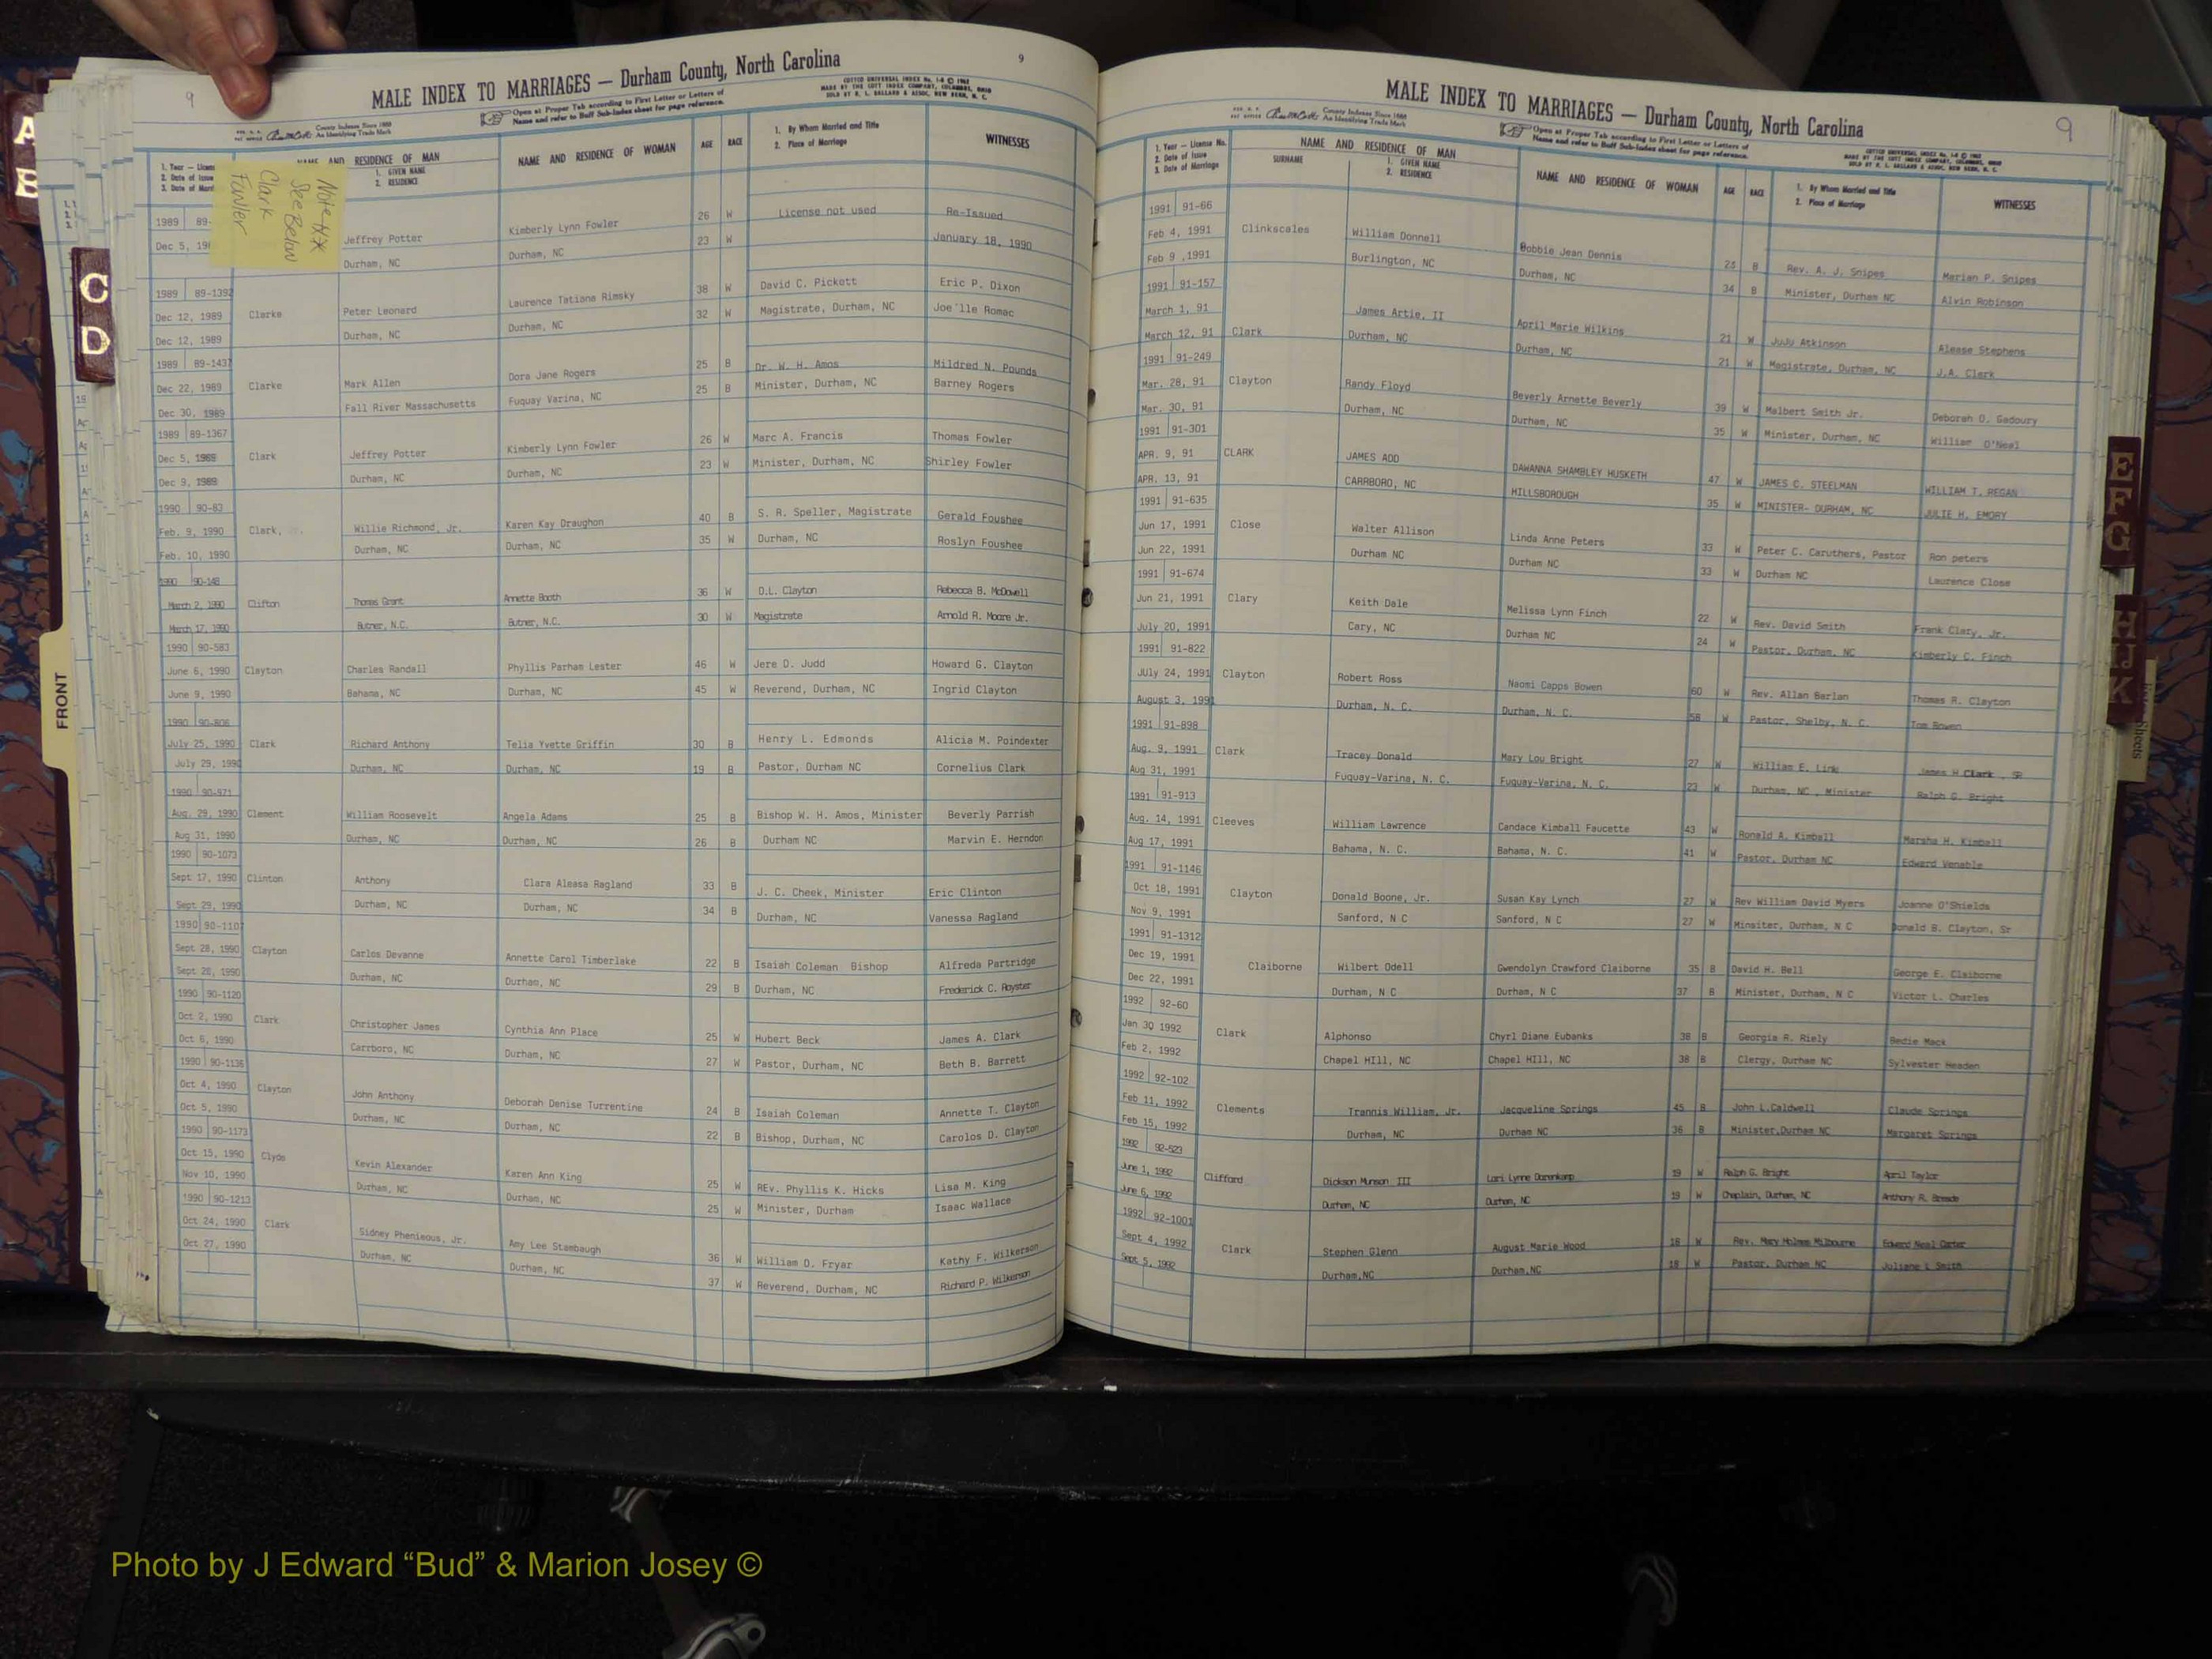 9
9
MALE INDEX TO MARRIAGES — Durham County, North Carolina
Open at Proper Tab according to First Letter or Letters of
Name and refer to Buff Sub-Index sheet for page reference.
COTTCO UNIVERSAL INDEX No. 1-8 © 1962
MADE BY THE COTT INDEX COMPANY, COLUMBUS, OHIO
SOLD BY R. L. BALLARD & ASSOC., NEW BERN, N. C.
County Indexes Since 1888
An Identifying Trade Mark
Note **
See Below
Clark
Fowler
1. Year — License
2. Date of Issue
3. Date of Marr
NAME AND RESIDENCE OF MAN
1. GIVEN NAME
2. RESIDENCE
NAME AND RESIDENCE OF WOMAN
AGE
RACE
1. By Whom Married and Title
2. Place of Marriage
WITNESSES
1989 89-
Jeffrey Potter Kimberly Lynn Fowler 26 W License not used Re-Issued
Dec 5, 19
Durham, NC Durham, NC 23 W January 18, 1990
1989 89-1392
Dec 12, 1989 Clarke Peter Leonard Laurence Tatiana Rimsky 38 W David C. Pickett Eric P. Dixon
Dec 12, 1989 Durham, NC Durham, NC 32 W Magistrate, Durham, NC Joe'lle Romac
1989 89-1437
Dec 22, 1989 Clarke Mark Allen Dora Jane Rogers 25 B Dr. W. H. Amos Mildred N. Pounds
Dec 30, 1989 Fall River Massachusetts Fuquay Varina, NC 25 B Minister, Durham, NC Barney Rogers
1989 89-1367
Dec 5, 1989 Clark Jeffrey Potter Kimberly Lynn Fowler 26 W Marc A. Francis Thomas Fowler
Dec 9, 1989 Durham, NC Durham, NC 23 W Minister, Durham, NC Shirley Fowler
1990 90-83
Feb. 9, 1990 Clark, Willie Richmond, Jr. Karen Kay Draughon 40 B S. R. Speller, Magistrate Gerald Foushee
Feb. 10, 1990 Durham, NC Durham, NC 35 W Durham, NC Roslyn Foushee
1990 90-148
March 2, 1990 Clifton Thomas Grant Annette Booth 36 W D.L. Clayton Rebecca B. McDowell
March 17, 1990 Butner, N.C. Butner, N.C. 30 W Magistrate Arnold R. Moore Jr.
1990 90-583
June 6, 1990 Clayton Charles Randall Phyllis Parham Lester 46 W Jere D. Judd Howard G. Clayton
June 9, 1990 Bahama, NC Durham, NC 45 W Reverend, Durham, NC Ingrid Clayton
1990 90-806
July 25, 1990 Clark Richard Anthony Telia Yvette Griffin 30 B Henry L. Edmonds Alicia M. Poindexter
July 29, 1990 Durham, NC Durham, NC 19 B Pastor, Durham NC Cornelius Clark
1990 90-971
Aug. 29, 1990 Clement William Roosevelt Angela Adams 25 B Bishop W. H. Amos, Minister Beverly Parrish
Aug 31, 1990 Durham, NC Durham, NC 26 B Durham NC Marvin E. Herndon
1990 90-1073
Sept 17, 1990 Clinton Anthony Clara Aleasa Ragland 33 B J. C. Cheek, Minister Eric Clinton
Sept 29, 1990 Durham, NC Durham, NC 34 B Durham, NC Vanessa Ragland
1990 90-1107
Sept 28, 1990 Clayton Carlos Devanne Annette Carol Timberlake 22 B Isaiah Coleman Bishop Alfreda Partridge
Sept 28, 1990 Durham, NC Durham, NC 29 B Durham, NC Frederick C. Royster
1990 90-1120
Oct 2, 1990 Clark Christopher James Cynthia Ann Place 25 W Hubert Beck James A. Clark
Oct 6, 1990 Carrboro, NC Durham, NC 27 W Pastor, Durham, NC Beth B. Barrett
1990 90-1136
Oct 4, 1990 Clayton John Anthony Deborah Denise Turrentine 24 B Isaiah Coleman Annette T. Clayton
Oct 5, 1990 Durham, NC Durham, NC 22 B Bishop, Durham, NC Carolos D. Clayton
1990 90-1173
Oct 15, 1990 Clyde Kevin Alexander Karen Ann King 25 W REv. Phyllis K. Hicks Lisa M. King
Nov 10, 1990 Durham, NC Durham, NC 25 W Minister, Durham Isaac Wallace
1990 90-1213
Oct 24, 1990 Clark Sidney Phenieous, Jr. Amy Lee Stambaugh 36 W William D. Fryar Kathy F. Wilkerson
Oct 27, 1990 Durham, NC Durham, NC 37 W Reverend, Durham, NC Richard P. Wilkerson
MALE INDEX TO MARRIAGES — Durham County, North Carolina
9
Open at Proper Tab according to First Letter or Letters of
Name and refer to Buff Sub-Index sheet for page reference.
COTTCO UNIVERSAL INDEX No. 1-8 © 1962
MADE BY THE COTT INDEX COMPANY, COLUMBUS, OHIO
SOLD BY R. L. BALLARD & ASSOC., NEW BERN, N. C.
County Indexes Since 1888
An Identifying Trade Mark
1. Year — License No.
2. Date of Issue
3. Date of Marriage
NAME AND RESIDENCE OF MAN
SURNAME
1. GIVEN NAME
2. RESIDENCE
NAME AND RESIDENCE OF WOMAN
AGE
RACE
1. By Whom Married and Title
2. Place of Marriage
WITNESSES
1991 91-66
Feb 4, 1991 Clinkscales William Donnell Bobbie Jean Dennis 23 B Rev. A. J. Snipes Marian P. Snipes
Feb 9 ,1991 Burlington, NC Durham, NC 34 B Minister, Durham NC Alvin Robinson
1991 91-157
March 1, 91 James Artie, II April Marie Wilkins 21 W JuJu Atkinson Alease Stephens
March 12, 91 Clark Durham, NC Durham, NC 21 W Magistrate, Durham, NC J.A. Clark
1991 91-249
Mar. 28, 91 Clayton Randy Floyd Beverly Arnette Beverly 39 W Malbert Smith Jr. Deborah O. Gadoury
Mar. 30, 91 Durham, NC Durham, NC 35 W Minister, Durham, NC William O'Neal
1991 91-301
APR. 9, 91 CLARK JAMES ADD DAWANNA SHAMBLEY HUSKETH 47 W JAMES C. STEELMAN WILLIAM T. REGAN
APR. 13, 91 CARRBORO, NC HILLSBOROUGH 35 W MINISTER- DURHAM, NC JULIE H. EMORY
1991 91-635
Jun 17, 1991 Close Walter Allison Linda Anne Peters 33 W Peter C. Caruthers, Pastor Ron peters
Jun 22, 1991 Durham NC Durham NC 33 W Durham NC Laurence Close
1991 91-674
Jun 21, 1991 Clary Keith Dale Melissa Lynn Finch 22 W Rev. David Smith Frank Clary, Jr.
July 20, 1991 Cary, NC Durham NC 24 W Pastor, Durham, NC Kimberly C. Finch
1991 91-822
JUly 24, 1991 Clayton Robert Ross Naomi Capps Bowen 60 W Rev. Allan Barlan Thomas R. Clayton
August 3, 1991 Durham, N. C. Durham, N. C. 58 W Pastor, Shelby, N. C. Tom Bowen
1991 91-898
Aug. 9, 1991 Clark Tracey Donald Mary Lou Bright 27 W William E. Link James H Clark , SR
Aug 31, 1991 Fuquay-Varina, N. C. Fuquay-Varina, N. C. 23 W Durham, NC , Minister Ralph G. Bright
1991 91-913
Aug. 14, 1991 Cleeves William Lawrence Candace Kimball Faucette 43 W Ronald A. Kimball Marsha H. Kimball
Aug 17, 1991 Bahama, N. C. Bahama, N. C. 41 W Pastor, Durham NC Edward Venable
1991 91-1146
Oct 18, 1991 Clayton Donald Boone, Jr. Susan Kay Lynch 27 W Rev William David Myers Joanne O'Shields
Nov 9, 1991 Sanford, N C Sanford, N C 27 W Minsiter, Durham, N C Donald B. Clayton, Sr
1991 91-1312
Dec 19, 1991 Claiborne Wilbert Odell Gwendolyn Crawford Claiborne 35 B David H. Bell George E. Claiborne
Dec 22, 1991 Durham, N C Durham, N C 37 B Minister, Durham, N C Victor L. Charles
1992 92-60
Jan 30 1992 Clark Alphonso Chyrl Diane Eubanks 38 B Georgia R. Riely Bedie Mack
Feb 2, 1992 Chapel HIll, NC Chapel HIll, NC 38 B Clergy, Durham NC Sylvester Headen
1992 92-102
Feb 11, 1992 Clements Trannis William, Jr. Jacqueline Springs 45 B John L.Caldwell Claude Springs
Feb 15, 1992 Durham, NC Durham NC 36 B Minister,Durham NC Margaret Springs
1992 92-523
June 1, 1992 Clifford Dickson Munson III Lori Lynne 19 W Ralph G. Bright April Taylor
June 6, 1992 Durham, NC Durham, NC 19 W Chaplain, Durham, NC Anthony R.
1992 92-1001
Sept 4, 1992 Clark Stephen Glenn August Marie Wood 18 W Rev. Mary Holmes Milbourne Edward Neal Carter
Sept 5, 1992 Durham,NC Durham,NC 18 W Pastor, Durham NC Juliane L Smith
C
D
E
F
G
H
IJ
K
FRONT
Photo by J Edward “Bud” & Marion Josey ©